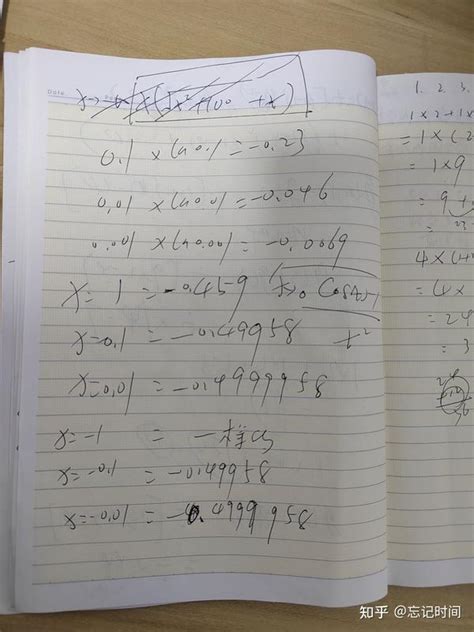 x→-∞ x(√x²+100 +x)
0.1 x(ln0.1 = -0.23
0.01 x(ln0.01 = -0.046
0.001 x(ln0.001 = -0.0069
x= 1 = -0.459 x→0 Cosx-1
x=0.1 = -0.49958 x²
x=0.01 = -0.4999958
x=-1 = 一样的
x=-0.1 = -0.49958
x=-0.01 = -0.4999958
1. 2. 3.
1×2+1×
=1×(2
=1×9
=9+
4×(4
=(4×
=24
=3
知乎 @忘记时间